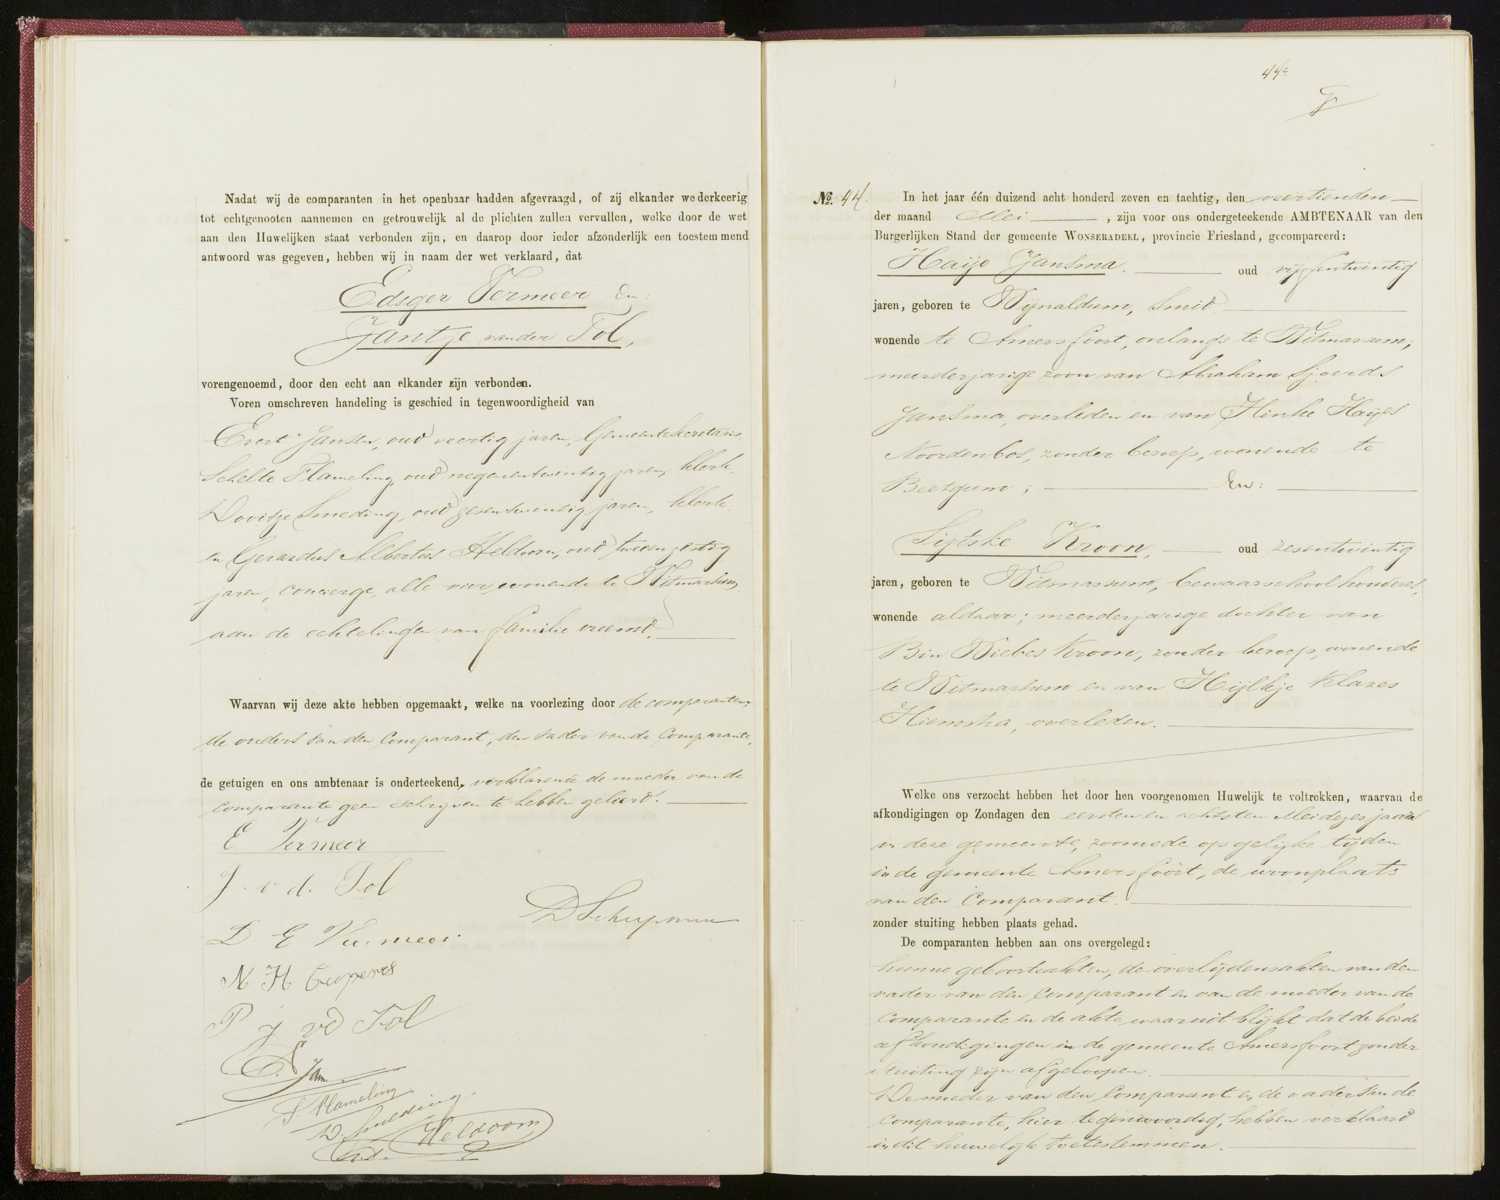 Nadat wij de comparanten in het openbaar hadden afgevraagd, of zij elkander wederkeerig
tot echtgenooten aannemen en getrouwelijk al de plichten zullen vervullen, welke door de wet
aan den Huwelijken staat verbonden zijn, en daarop door ieder afzonderlijk een toestemmend
antwoord was gegeven, hebben wij in naam der wet verklaard, dat
Edsger Vermeer En:
Jantje van der Tol,
vorengenoemd, door den echt aan elkander zijn verbonden.
Voren omschreven handeling is geschied in tegenwoordigheid van
Evert Jansen, oud veertig jaren, Gemeentesecretaris
Schelte Flameling oud negenentwintig jaren, klerk.
Douitze Smeding, oud zesentwintig jaren, klerk.
en Gerardus Albertus Heldoorn, oud tweeenzestig
jaren, concierge, alle vier wonende te Witmarsum
aan de echtelingen van familie vreemd.
Waarvan wij deze akte hebben opgemaakt, welke na voorlezing door de comparanten,
de ouders van den Comparant, den vader van de Comparante,
de getuigen en ons ambtenaar is onderteekend, verklarende de moeder van de
comparante geen schrijven te hebben geleerd.
E Vermeer
J. v. d. Tol
D Schuijman
D E Vermeer
N H Cuperus
P J vd Tol
E. Jan
S Flameling
D Smeding.
Heldoorn
44
No. 44. In het jaar één duizend acht honderd zeven en tachtig, den veertienden
der maand Mei, zijn voor ons ondergeteekende AMBTENAAR van den
Burgerlijken Stand der gemeente WONSERADEEL, provincie Friesland, gecompareerd:
Haije Jansma. oud vijfentwintig
jaren, geboren te Wijnaldum, Smid
wonende te Amersfoort, onlangs te Witmarsum;
meerderjarige zoon van Abraham Sjoerds
Jansma, overleden en van Hinke Haijes
Noordenbos, zonder beroep, wonende te
Beetgum; En:
Sijtske Kroon, oud zesentwintig
jaren, geboren te Witmarsum, bewaarschoolhouderes,
wonende aldaar; meerderjarige dochter van
Bin Wiebes Kroon, zonder beroep, wonende
te Witmarsum en van Hijlkje Klazes
Hiemstra, overleden.
Welke ons verzocht hebben het door hen voorgenomen Huwelijk te voltrekken, waarvan de
afkondigingen op Zondagen den eersten en achtsten Mei dezes jaars
in deze gemeente, zoomede op gelijke tijden
in de gemeente Amersfoort, de woonplaats
van den Comparant.
zonder stuiting hebben plaats gehad.
De comparanten hebben aan ons overgelegd:
hunne geboorteakten, de overlijdensakten van den
vader van den Comparant en van de moeder van de
comparante en de akte, waaruit blijkt dat de beide
afkondigingen in de gemeente Amersfoort zonder
stuiting zijn afgeloopen.
De moeder van den Comparant en de vader van de
Comparante, hier tegenwoordig, hebben verklaard
in dit huwelijk toetestemmen.